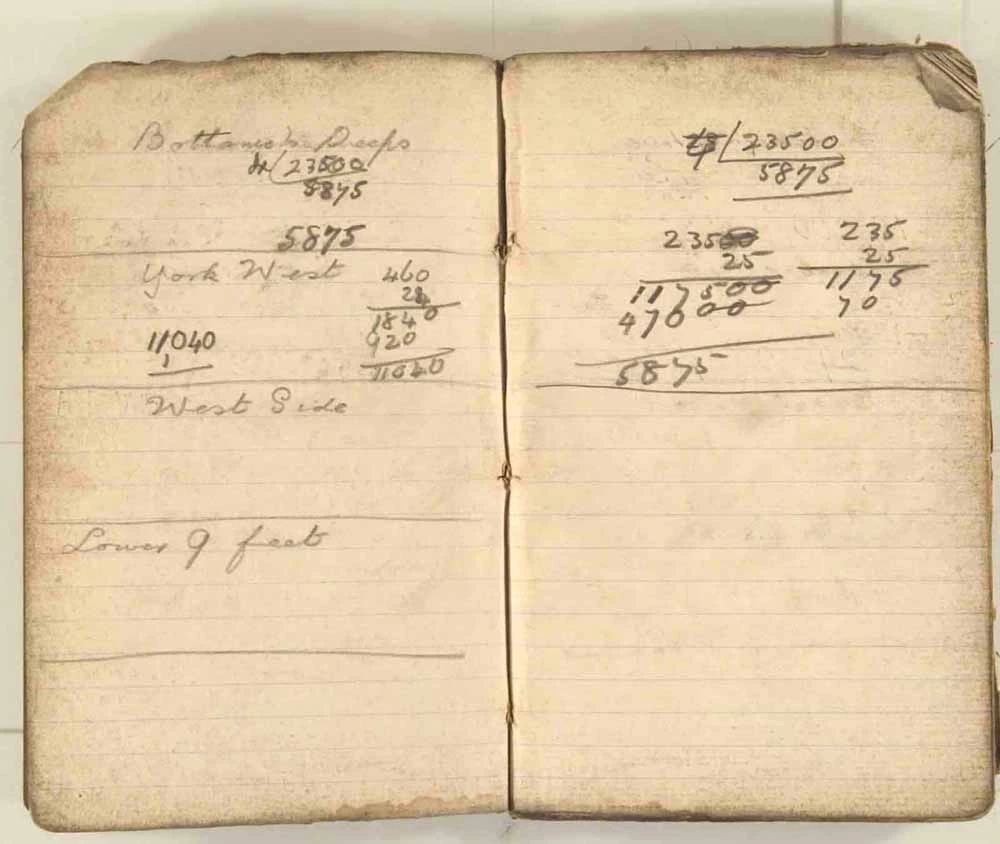 Bottomer's Deeps
4/23500
5875
5875
York West 460
24
1840
11,040 920
11040
West Side
Lower 9 feet
23500
5875
23500 235
25 25
117500 1175
47000 70
5875